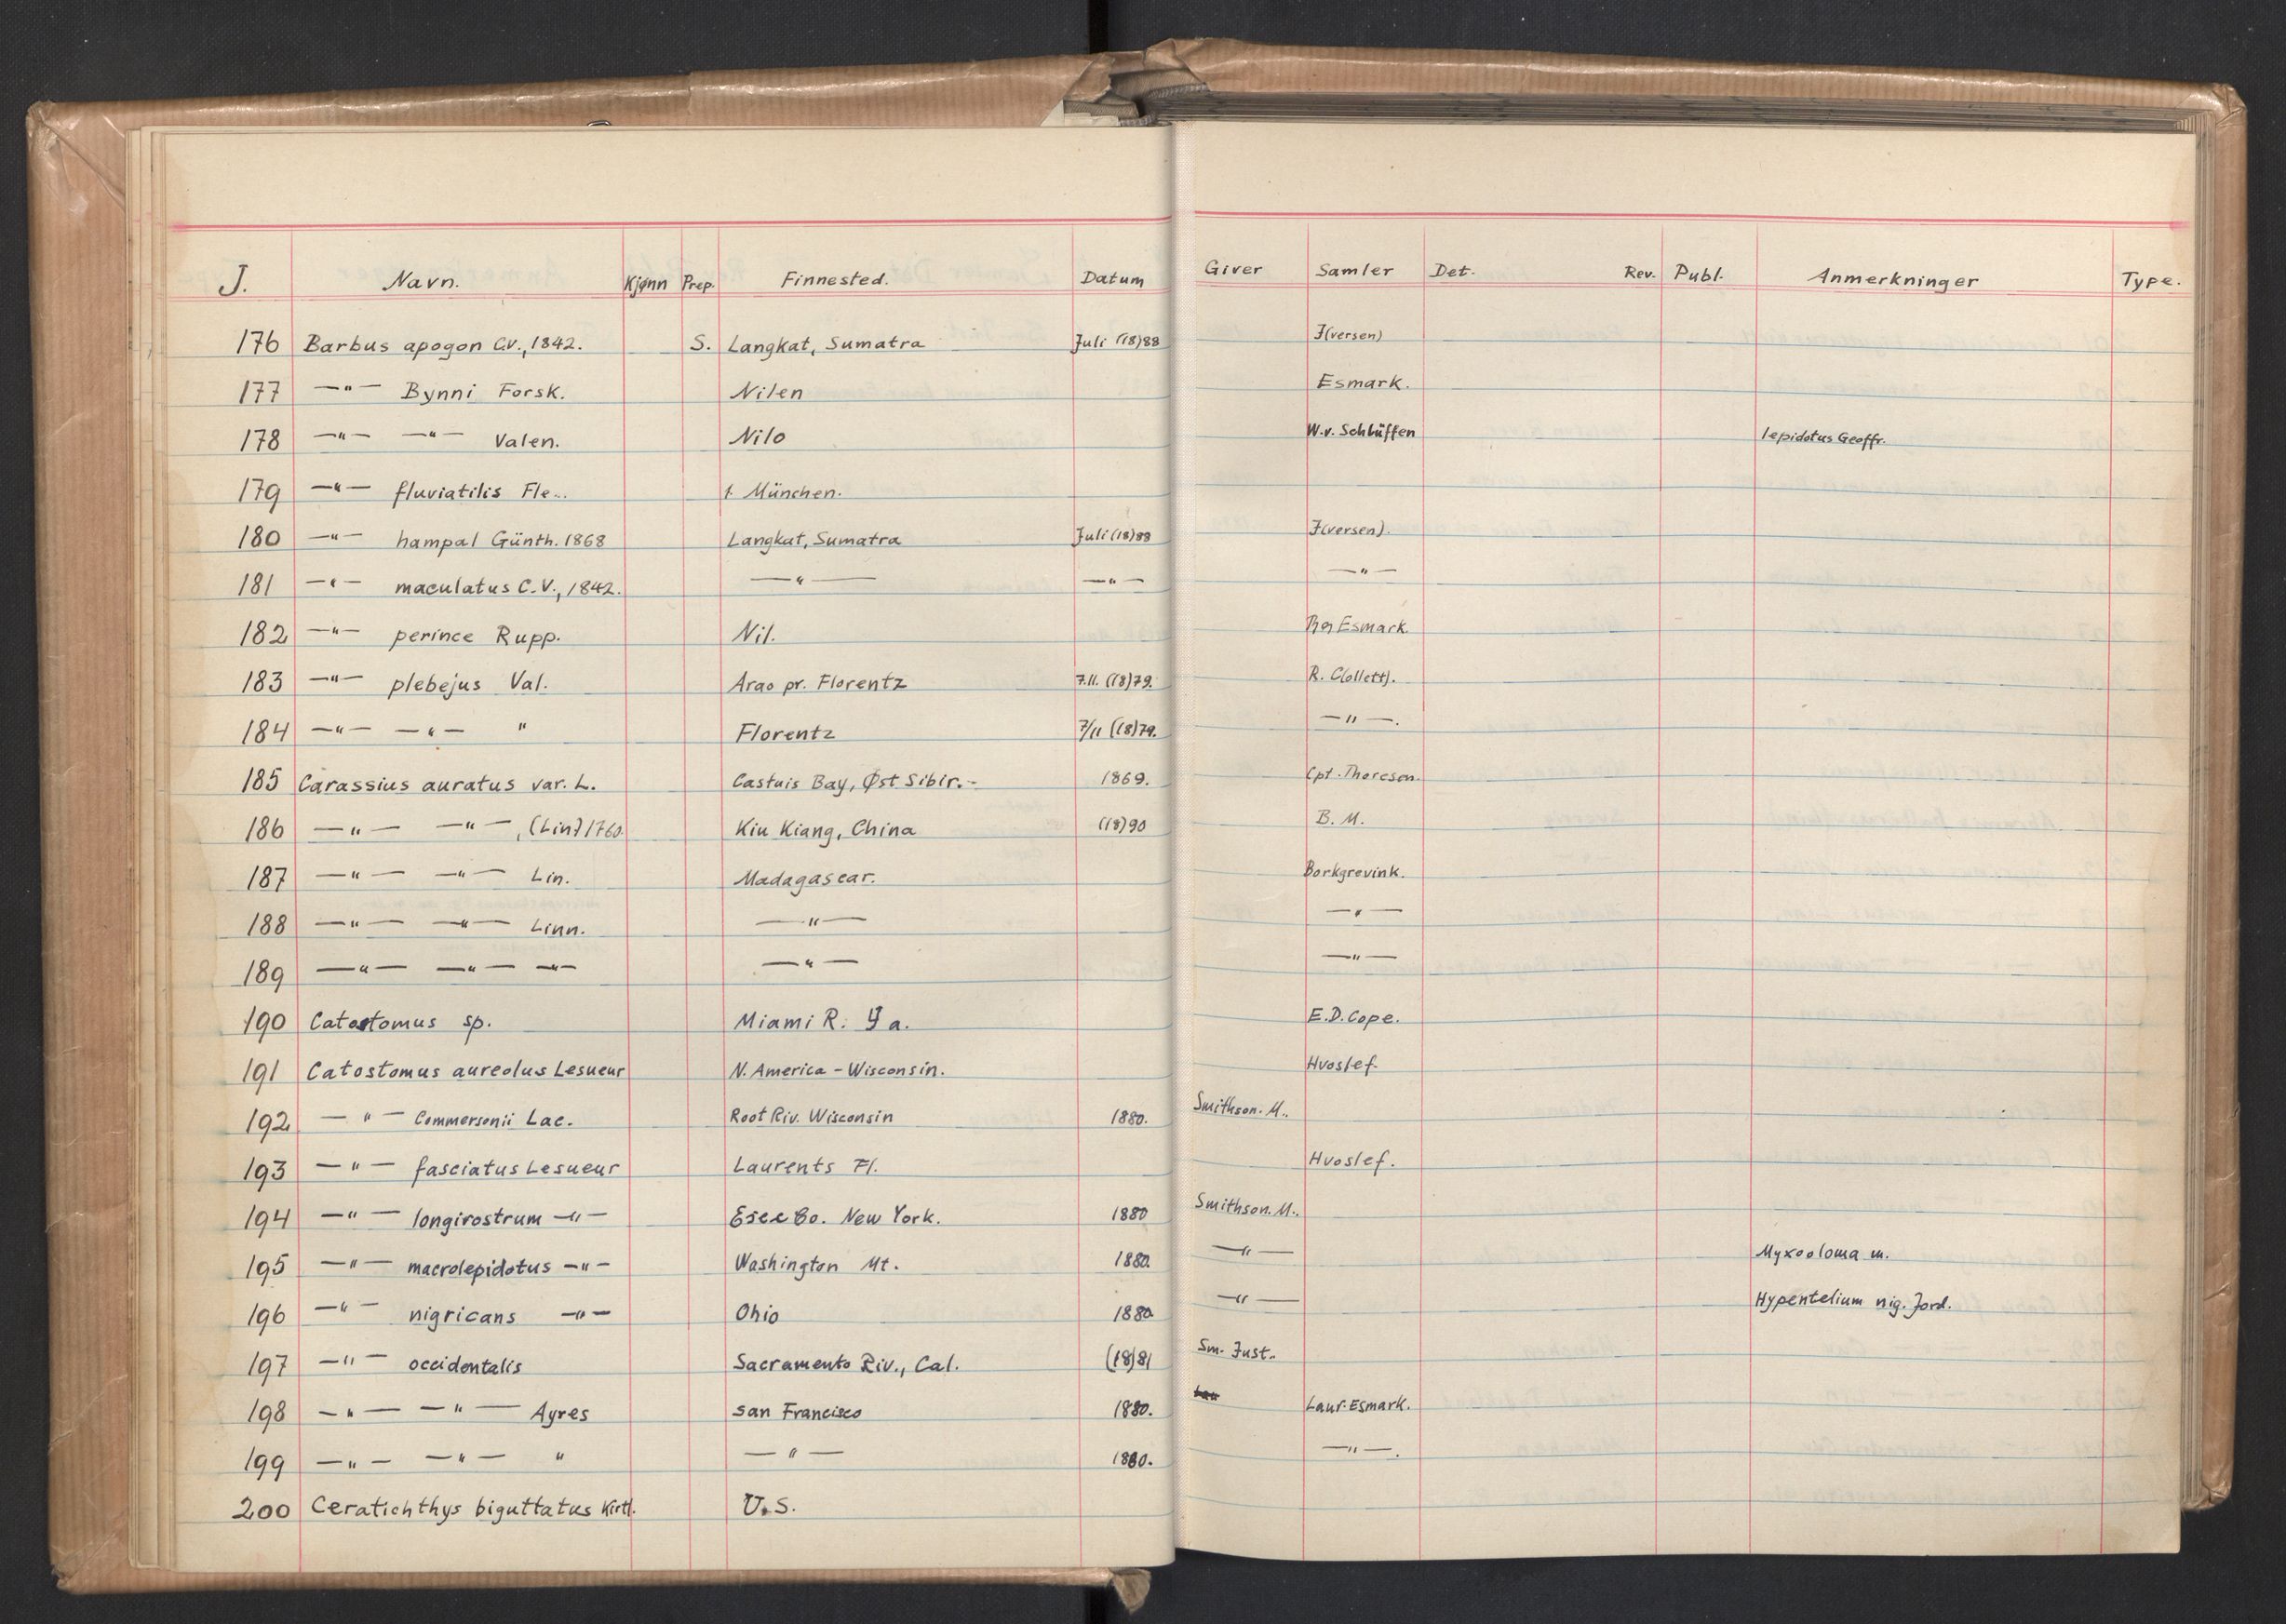 J. Navn. Kjønn Prep. Finnested. Datum Giver Samler Det. Rev. Publ. Anmerkninger Type.
176 Barbus apogon C.V., 1842. S. Langkat, Sumatra Juli (18)88 I(versen)
177 —"— Bynni Forsk. Nilen Esmark.
178 —"— —"— Valen. Nilo W.v. Schlüffen lepidotus Geoffr.
179 —"— fluviatilis Fle... München.
180 —"— hampal Günth. 1868 Langkat, Sumatra Juli (18)88 I(versen).
181 —"— maculatus C.V., 1842. —"— —"— —"—
182 —"— perince Rupp. Nil. Esmark.
183 —"— plebejus Val. Arao pr. Florentz 7.11. (18)79. R. C(ollett).
184 —"— —"— " Florentz 7/11 (18)79. —"—.
185 Carassius auratus var. L. Castuis Bay, Øst Sibir.- 1869. Cpt. Thoresen.
186 —"— —"—, (Lin) 1760. Kiu Kiang, China (18)90 B. M.
187 —"— —"— Lin. Madagascar. Borkgrevink.
188 —"— —"— Linn. —"— —"—
189 —"— —"— —"— —"— —"—
190 Catostomus sp. Miami R. E.D. Cope.
191 Catostomus aureolus Lesueur N. America - Wisconsin. Hvoslef.
192 —"— Commersonii Lac. Root Riv. Wisconsin 1880. Smithson. M..
193 —"— fasciatus Lesueur Laurents Fl. Hvoslef.
194 —"— longirostrum —"— Co. New York. 1880 Smithson. M..
195 —"— macrolepidotus —"— Washington Mt. 1880. —"— Myxooloma m.
196 —"— nigricans —"— Ohio 1880 —"— Hypentelium nig. Jord.
197 —"— occidentalis Sacramento Riv., Cal. (18)81 Sm. Inst..
198 —"— —"— Ayres San Francisco 1880. Laur. Esmark.
199 —"— —"— " —"— 1880. —"—.
200 Ceratichthys biguttatus Kirtl. U.S.